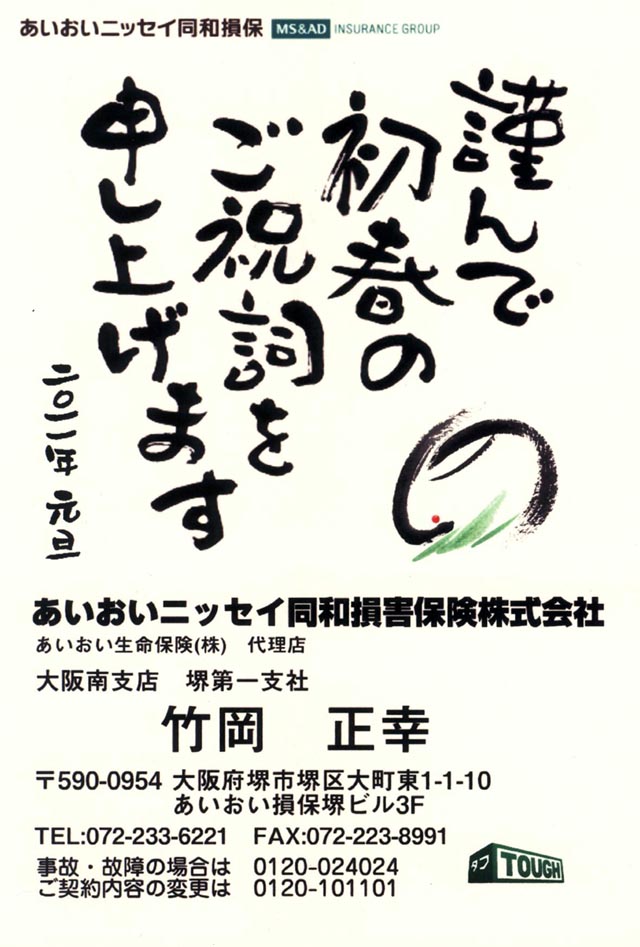 あいおいニッセイ同和損保 MS&AD INSURANCE GROUP
謹んで
初春の
ご祝詞を
申し上げます
二〇一一年 元旦
あいおいニッセイ同和損害保険株式会社
あいおい生命保険(株) 代理店
大阪南支店 堺第一支社
竹岡 正幸
〒590-0954 大阪府堺市堺区大町東1-1-10
あいおい損保堺ビル3F
TEL:072-233-6221 FAX:072-223-8991
事故・故障の場合は 0120-024024
ご契約内容の変更は 0120-101101
タフ TOUGH